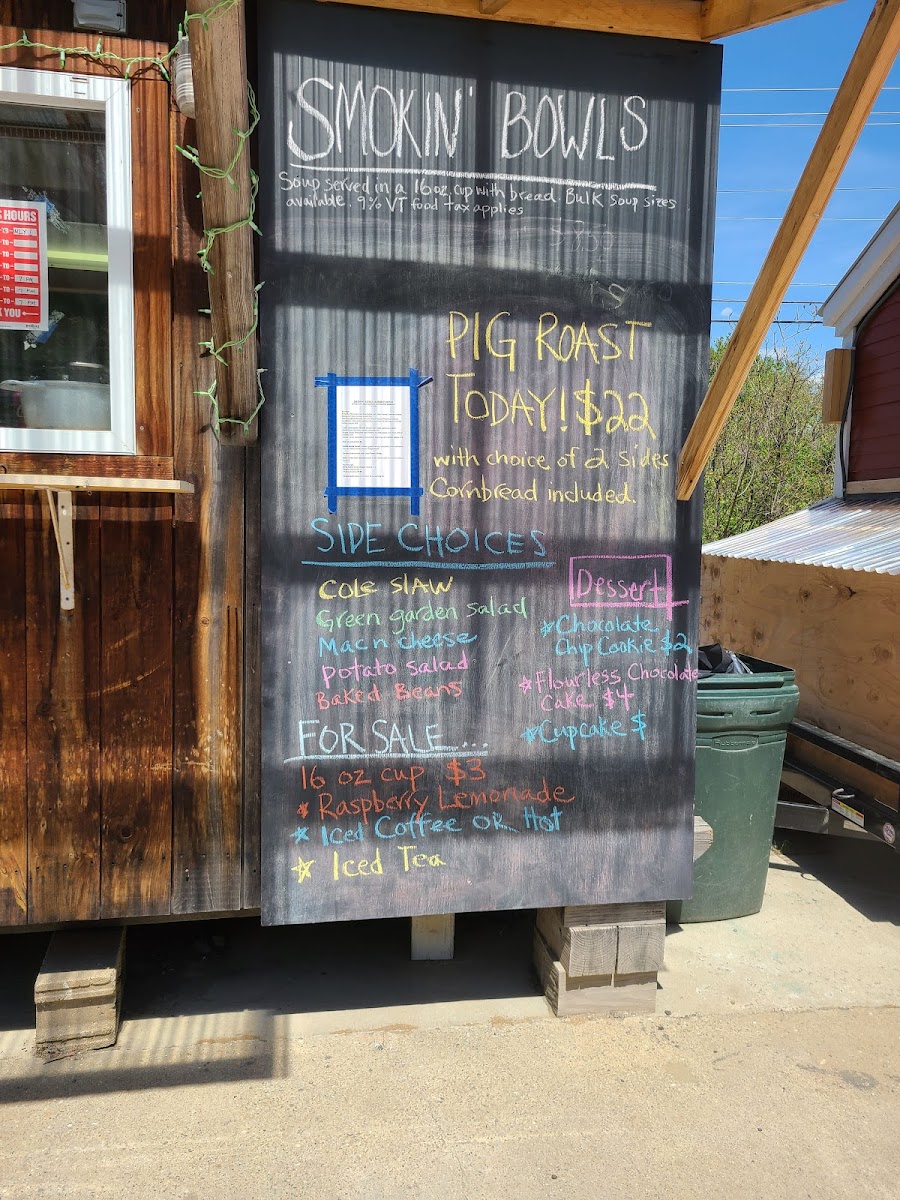 SMOKIN' BOWLS
Soup served in a 16 oz. cup with bread. Bulk soup sizes
available. 9% VT food tax applies
HOURS
YOU
PIG ROAST
TODAY! $22
with choice of 2 sides
Cornbread included.
SIDE CHOICES
Cole Slaw
Green garden salad
Mac n cheese
Potato salad
Baked Beans
Dessert
*Chocolate
Chip Cookie $2
*Flourless Chocolate
Cake $4
*Cupcake $
FOR SALE....
16 oz cup $3
* Raspberry Lemonade
* Iced Coffee OR Hot
☆ Iced Tea